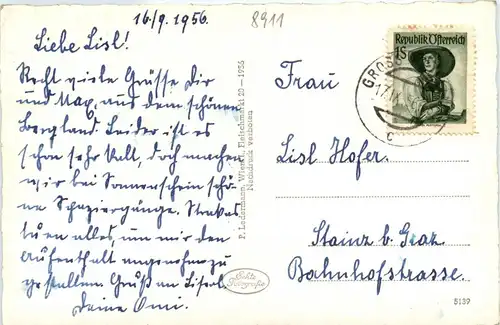 16/9. 1956.
8911
Liebe Lisl!
Recht viele Grüsse Dir
und Max, aus dem schönen
Bergland. Leider ist es
schon sehr kalt, doch machen
wir bei Sonnenschein schö-
ne Spaziergänge.
tuen alles, um mir den
Aufenthalt angenehm zu
gestalten. Gruß an
Deine Omi.
P. Ledermann, Wien I., Fleischmarkt 20 — 1956
Nachdruck verboten
Echte
Fotografie
Republik Österreich
1S
GROSS
17.IX
c
Frau
Lisl Hofer.
Stainz b. Graz
Bahnhofstrasse.
5139